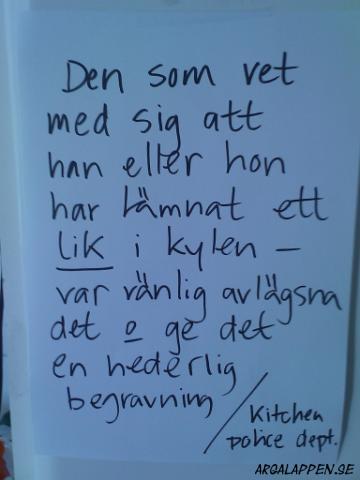 Den som vet
med sig att
han eller hon
har lämnat ett
lik i kylen –
var vänlig avlägsna
det o ge det
en hederlig
begravning
/ Kitchen
police dept.
ARGALAPPEN.SE